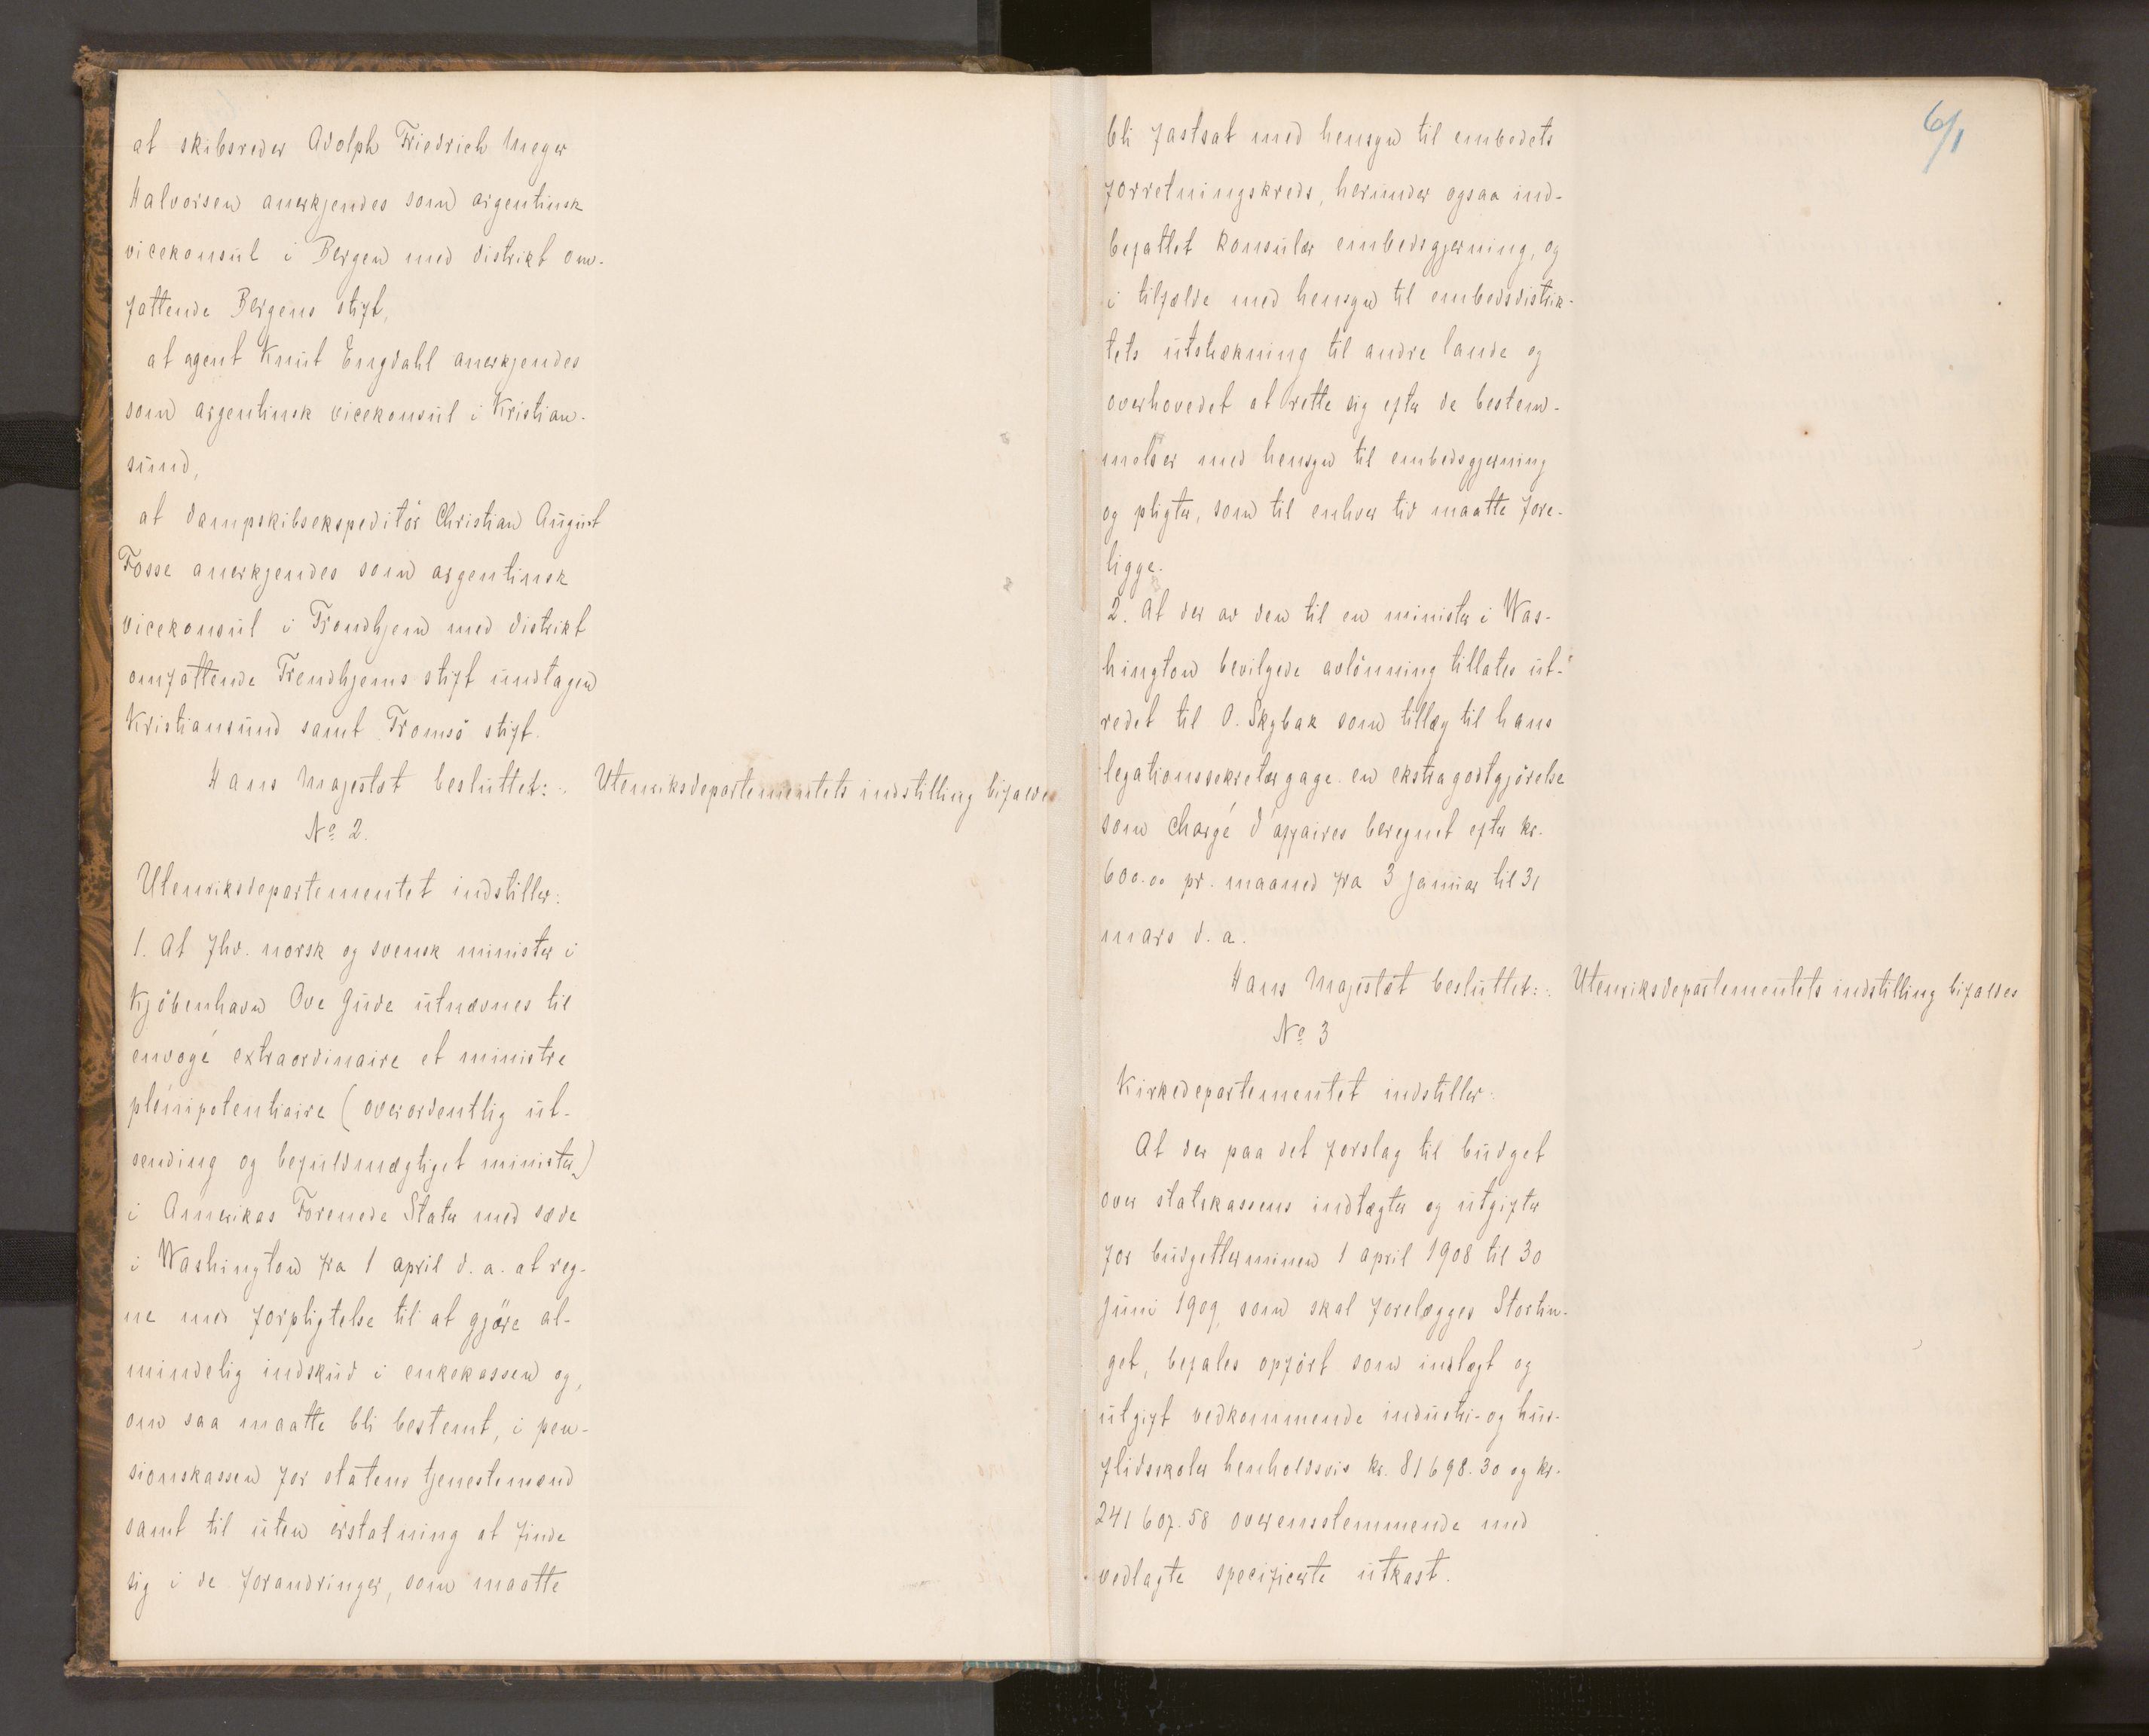 at skibsreder Adolph Friedrich Meyer
Halvorsen anerkjendes som argentinsk
vicekonsul i Bergen med distrikt om-
fattende Bergens stift,
at agent Knut Engdahl anerkjendes
som argentinsk vicekonsul i Kristian-
sund,
at dampskibsekspeditör Christian August
Fosse anerkjendes som argentinsk
vicekonsul i Trondhjem med distrikt
omfattende Trondhjems stift undtagen
Kristiansund samt Tromsö stift.
Hans Majestæt besluttet: Utenriksdepartementets indstilling bifaldes
No 2.
Utenriksdepartementet indstiller:
1. At fhv. norsk og svensk minister i
Kjöbenhavn Ove Gude utnævnes til
envoyé extraordinaire et ministre
plénipotentiaire (overordentlig ut-
sending og befuldmægtiget minister)
i Amerikas Forenede Stater med sæde
i Washington fra 1 april d. a. at reg-
ne med forpligtelse til at gjöre al-
mindelig indskud i enkekassen og,
om saa maatte bli bestemt, i pen-
sionskassen for statens tjenestemænd
samt til uten erstatning at finde
sig i de forandringer, som maatte
6/1
bli fastsat med hensyn til embedets
forretningskreds, herunder ogsaa ind-
befattet konsulær embedsgjerning, og
i tilfælde med hensyn til embedsdistrik-
tets utstrækning til andre lande og
overhovedet at rette sig efter de bestem-
melser med hensyn til embedsgjerning
og pligter, som til enhver tid maatte fore-
ligge.
2. At der av den til en minister i Was-
hington bevilgede avlönning tillates ut-
redet til O. Skybak som tillæg til hans
legationssekretærgage en ekstragodtgjörelse
som chargé d'affaires beregnet efter kr.
600.00 pr. maaned fra 3 januar til 31
mars d. a.
Hans Majestæt besluttet: Utenriksdepartementets indstilling bifaldes
No 3
Kirkedepartementet indstiller:
At der paa det forslag til budget
over statskassens indtægter og utgifter
for budgetterminen 1 april 1908 til 30
juni 1909, som skal forelægges Stortin-
get, befales opfört som indtægt og
utgift vedkommende industri- og hus-
flidsskoler henholdsvis kr. 81698.30 og kr.
241607.58 overensstemmende med
vedlagte specificerte utkast.